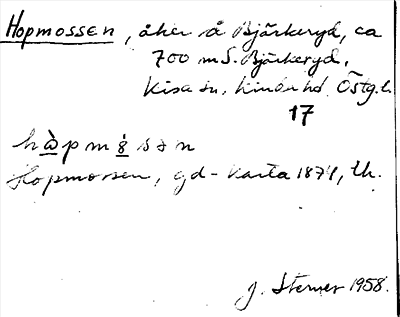 Hopmossen, åker å Bjärkeryd, ca
700 m S. Bjärkeryd,
Kisa sn, Kinda hd Östg. l.
17
hò̱pmò̱sən
Hopmossen, gd-karta 1874, th.
J. Sterner 1958.